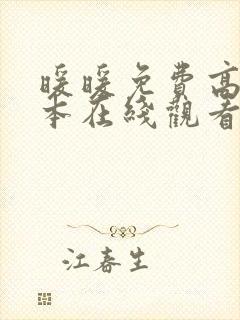 暖暖免费高
本在线觀看
江春生